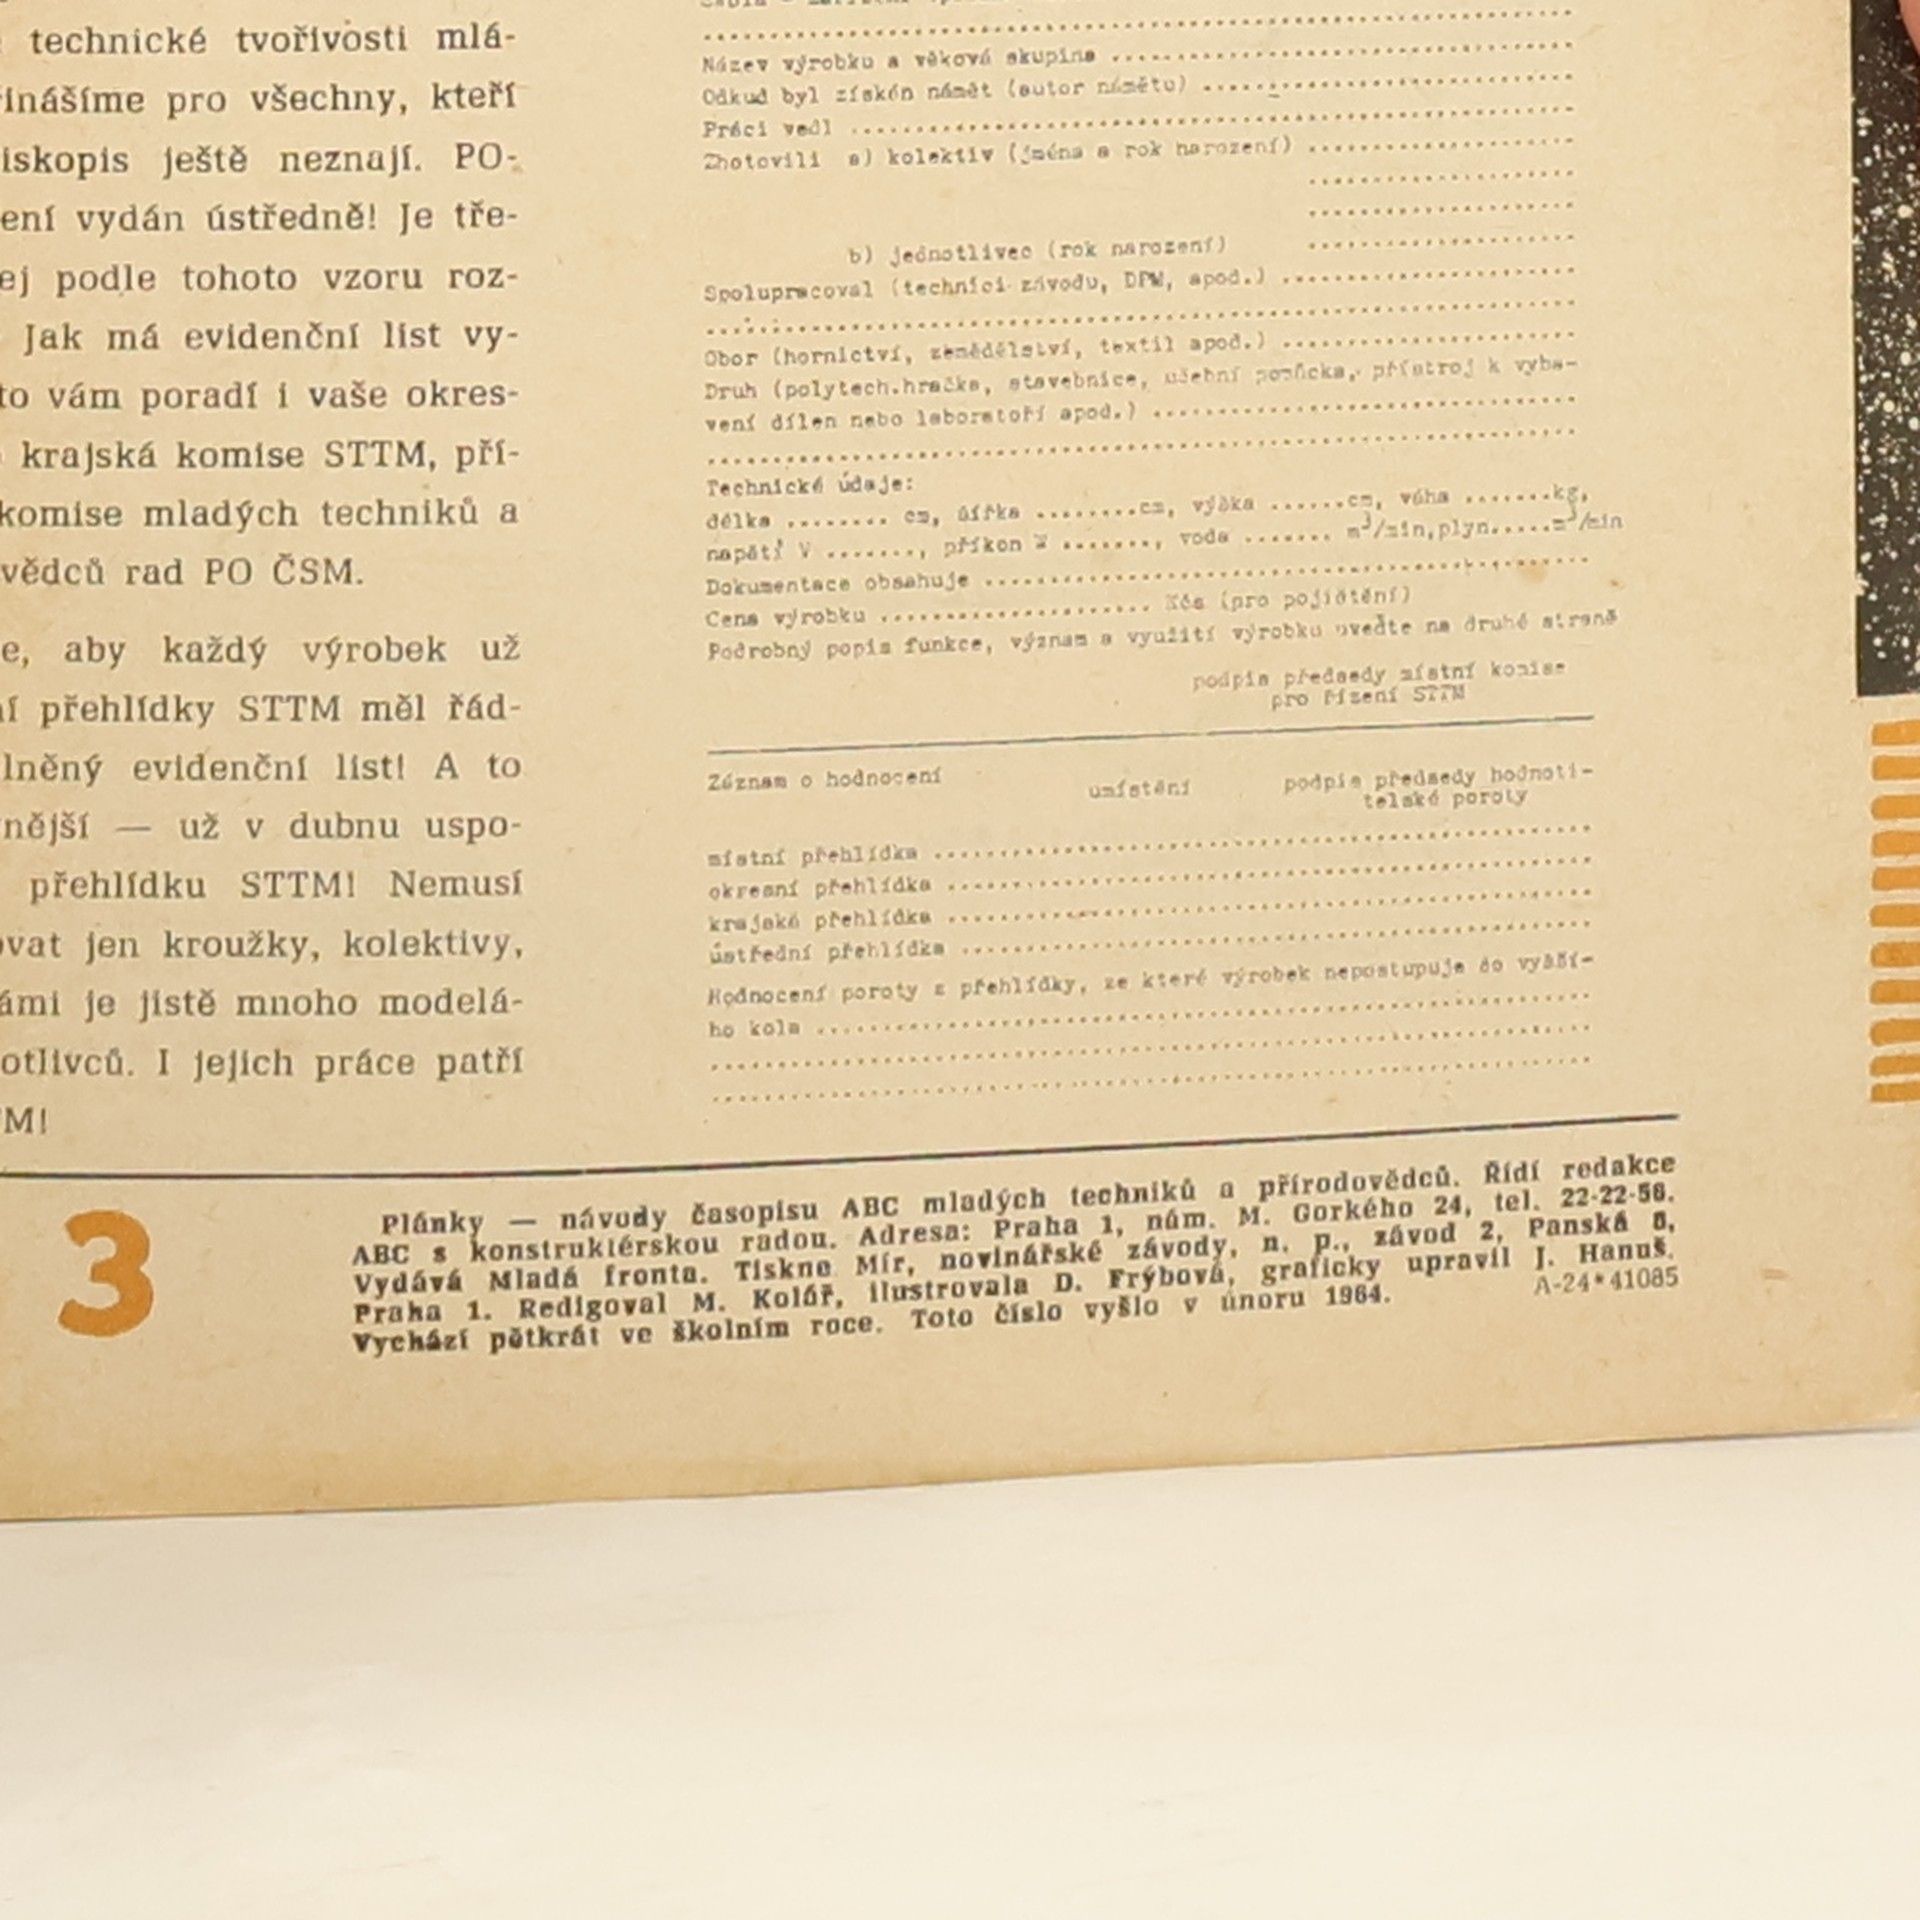 technické tvořivosti mlá-
řinášíme pro všechny, kteří
iskopis ještě neznají. PO-
ení vydán ústředně! Je tře-
ej podle tohoto vzoru roz-
Jak má evidenční list vy-
to vám poradí i vaše okres-
krajská komise STTM, pří-
komise mladých techniků a
vědců rad PO ČSM.
e, aby každý výrobek už
ní přehlídky STTM měl řád-
lněný evidenční list! A to
nější — už v dubnu uspo-
přehlídku STTM! Nemusí
ovat jen kroužky, kolektivy,
ámi je jistě mnoho modelá-
otlivců. I jejich práce patří
TM!
Název výrobku a věková skupina
Odkud byl získán námět (autor námětu)
Práci vedl
Zhotovili a) kolektiv (jména a rok narození)
b) jednotlivec (rok narození)
Spolupracoval (technici závodu, DPM, apod.)
Obor (hornictví, zemědělství, textil apod.)
Druh (polytech.hračka, stavebnice, učební pomůcka, přístroj k vyba-
vení dílen nebo laboratoří apod.)
Technické údaje:
délka ........ cm, šířka ........cm, výška ......cm, váha .......kg,
napětí V ......., příkon W ......., voda ....... m³/min,plyn.....m³/min
Dokumentace obsahuje
Cena výrobku ..................... Kčs (pro pojištění)
Podrobný popis funkce, význam a využití výrobku uveďte na druhé straně
podpis předsedy místní komise
pro řízení STTM
Záznam o hodnocení umístění podpis předsedy hodnoti-
telské poroty
místní přehlídka
okresní přehlídka
krajská přehlídka
ústřední přehlídka
Hodnocení poroty z přehlídky, ze které výrobek nepostupuje do vyšší-
ho kola
3
Plánky — návody časopisu ABC mladých techniků a přírodovědců. Řídí redakce
ABC s konstruktérskou radou. Adresa: Praha 1, nám. M. Gorkého 24, tel. 22-22-56.
Vydává Mladá fronta. Tiskne Mír, novinářské závody, n. p., závod 2, Panská 8,
Praha 1. Redigoval M. Kolář, ilustrovala D. Frýbová, graficky upravil J. Hanuš.
Vychází pětkrát ve školním roce. Toto číslo vyšlo v únoru 1964. A-24*41085